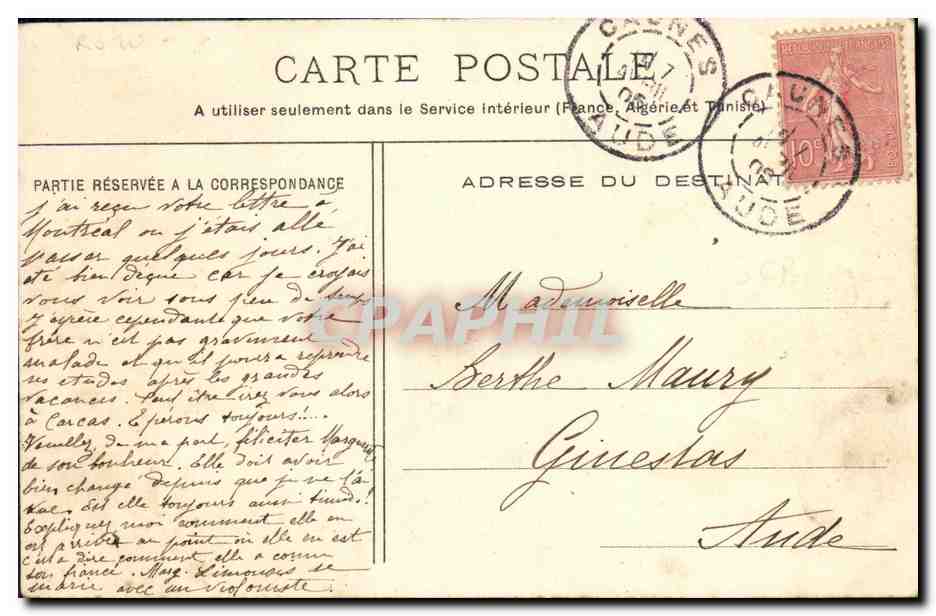 RSW
CARTE POSTALE
A utiliser seulement dans le Service intérieur (France, Algérie et Tunisie)
CAUNES
AUDE
CAUNES
AUDE
REPUBLIQUE FRANÇAISE
10c
PARTIE RÉSERVÉE A LA CORRESPONDANCE
ADRESSE DU DESTINAT
j'ai reçu votre lettre a
Montréal ou j'étais allé
passer quelques jours. J'ai
été bien deçue car je croyais
vous voir sous peu de temps
J'espère cependant que votre
frère n'est pas gravement
malade et qu'il pourra reprendre
ses etudes après les grandes
vacances. Peut être irez vous alors
à Carcas. Espérons toujours!...
Veuillez, de ma part, féliciter Marguerite
de son bonheur. Elle doit avoir
bien changé depuis que je ne l'ai
vue. Est elle toujours aussi timide!
Expliquez moi comment elle en
est arrivée au point où elle en est
c'est a dire comment elle a connu
son fiancé. Marg. Limouses se
marie avec un violoniste.
Mademoiselle
Berthe Maury
Ginestas
Aude
CPAPHIL